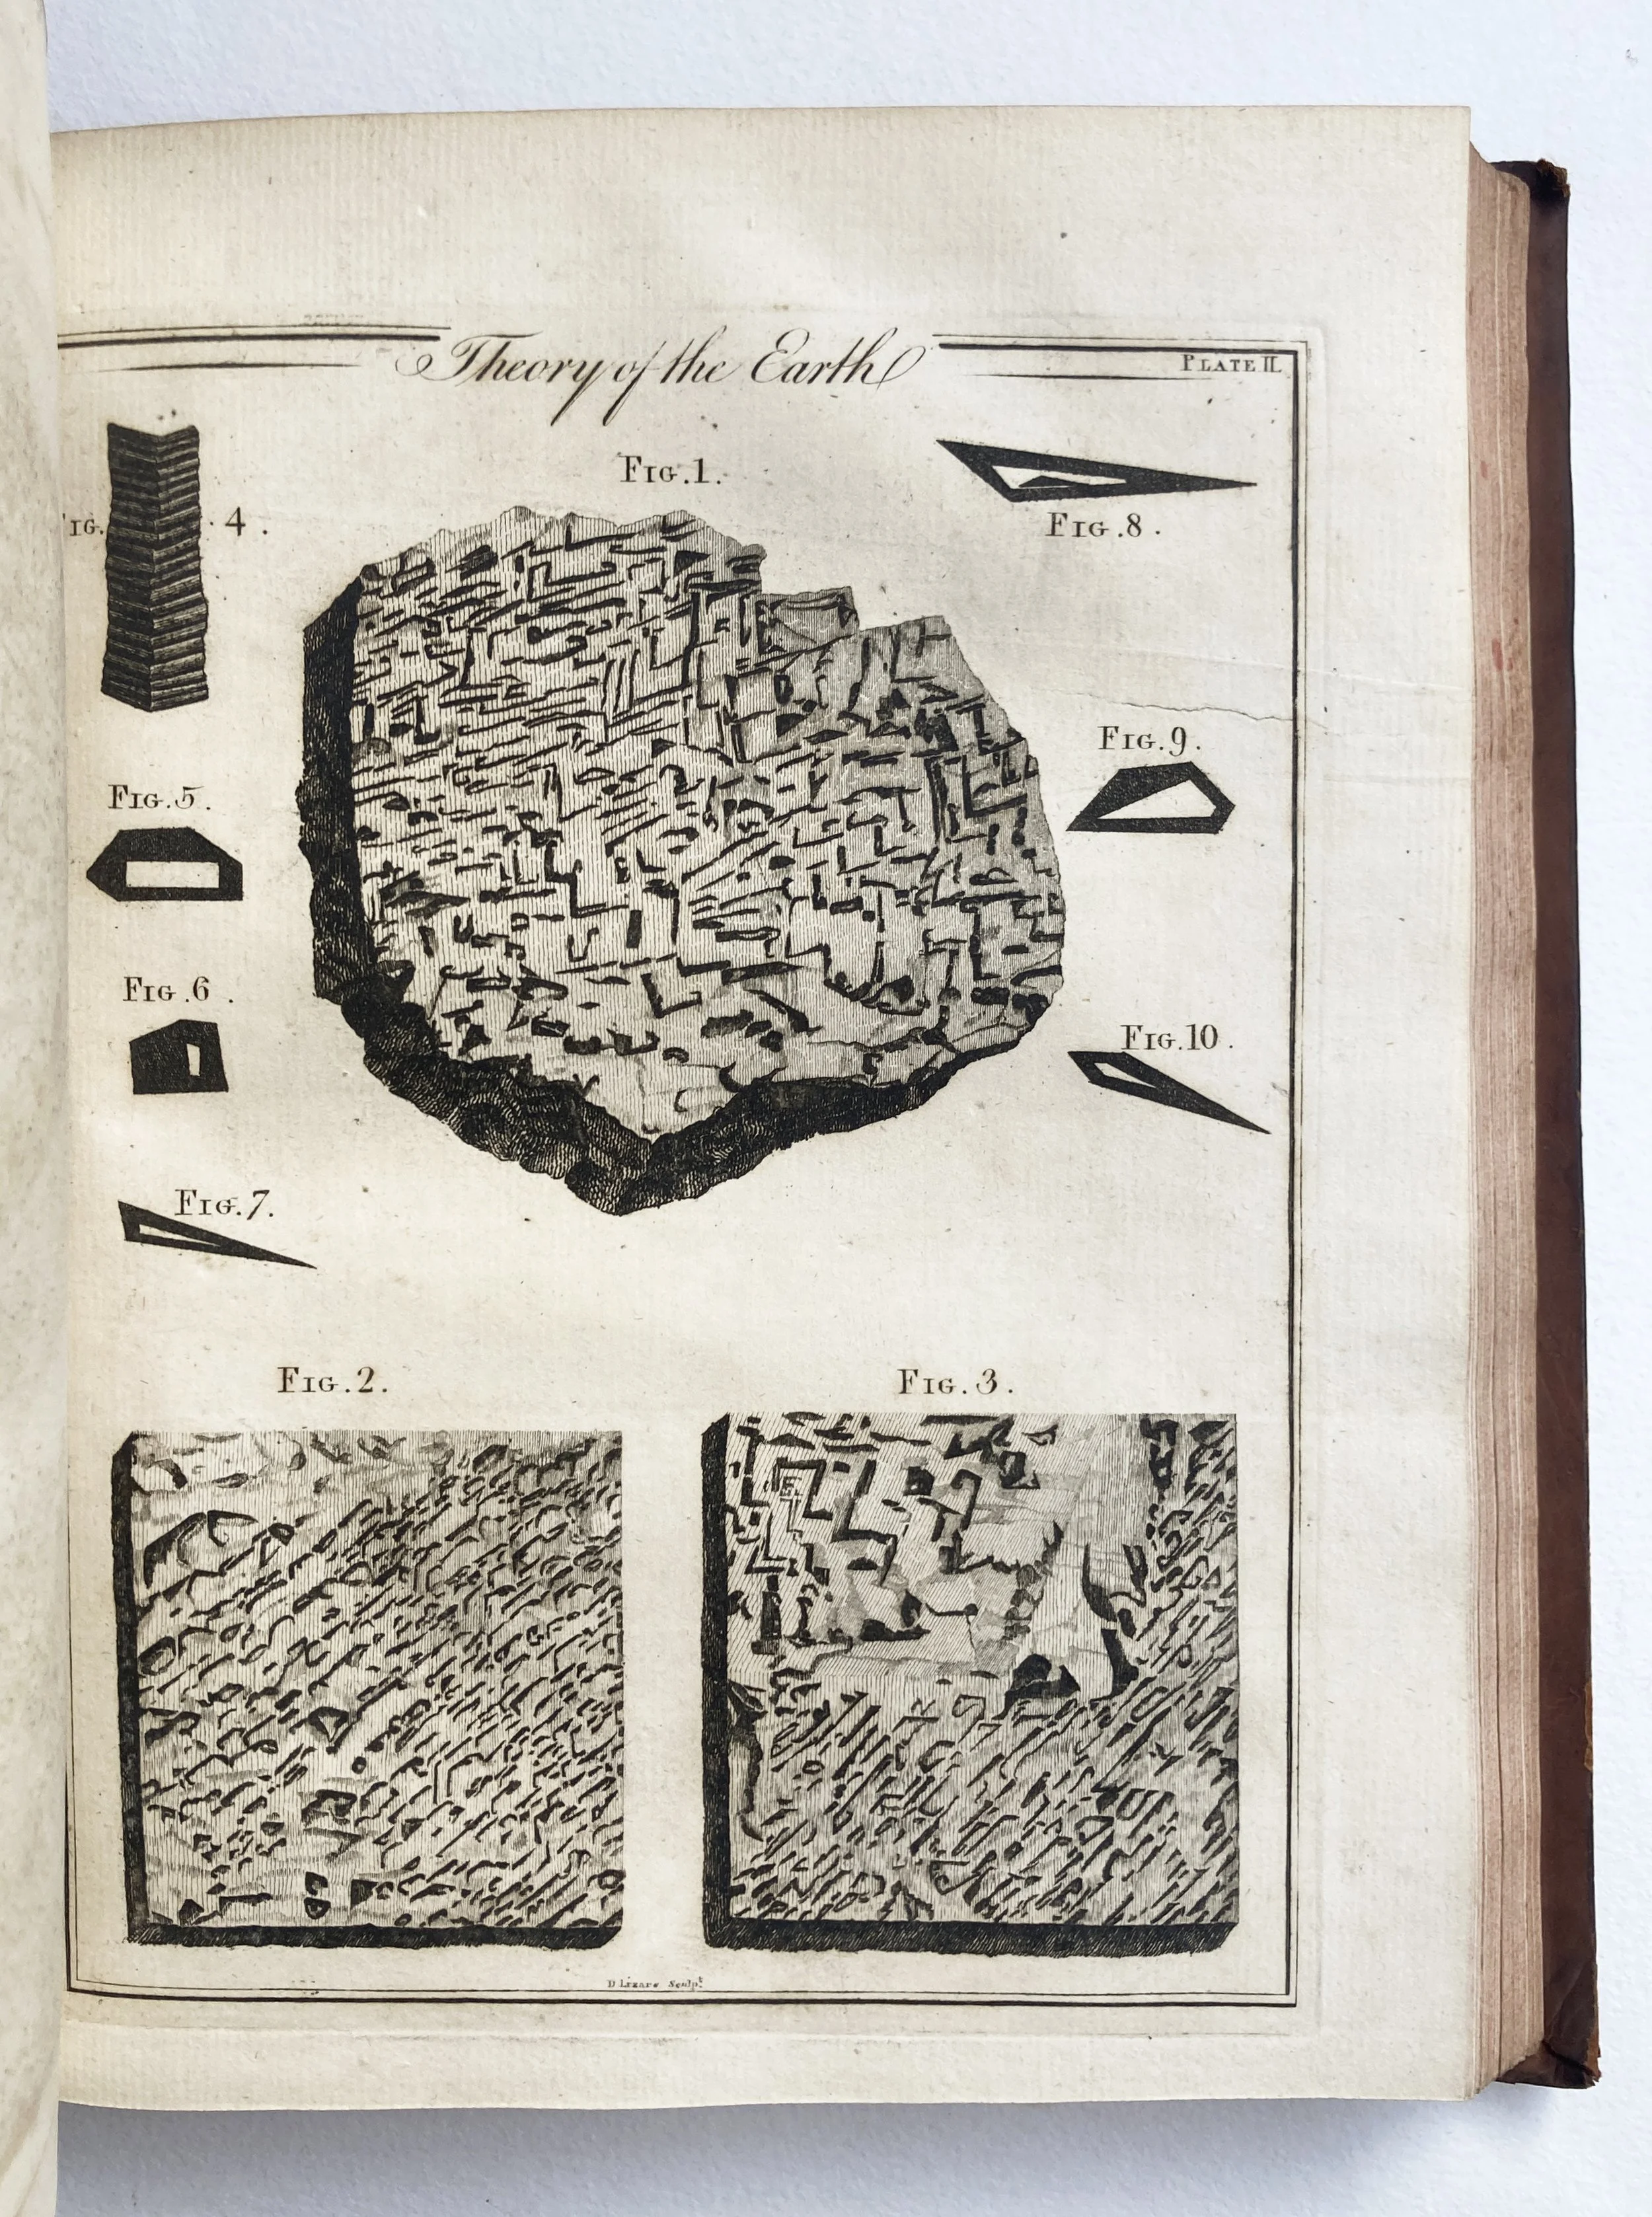 Theory of the Earth
PLATE II.
FIG. 1.
FIG. 8.
4.
FIG. 9.
FIG. 5.
FIG. 6.
FIG. 10.
FIG. 7.
FIG. 2.
FIG. 3.
D Lizars Sculpt.